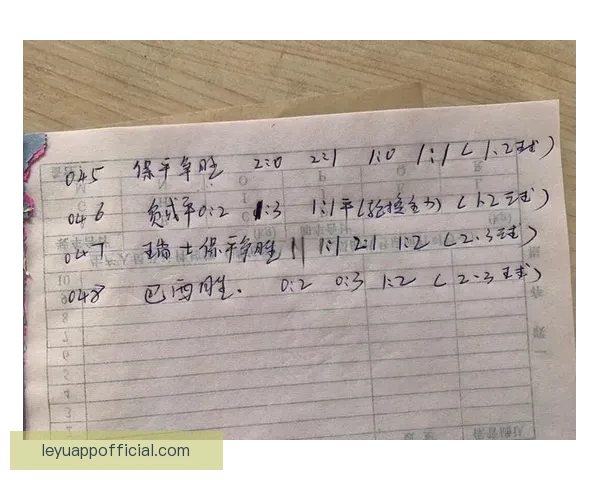 045 保平争胜 2:0 2:1 1:0 1:1 (1.2球)
046 负或平 0:2 1:3 1:1平 (轮换主力) (1-2球)
047 瑞士保平争胜 || 1:1 2:1 1:2 (2.3球)
048 巴西胜. 0:2 0:3 1:2 (2-3球)
leyuappofficial.com